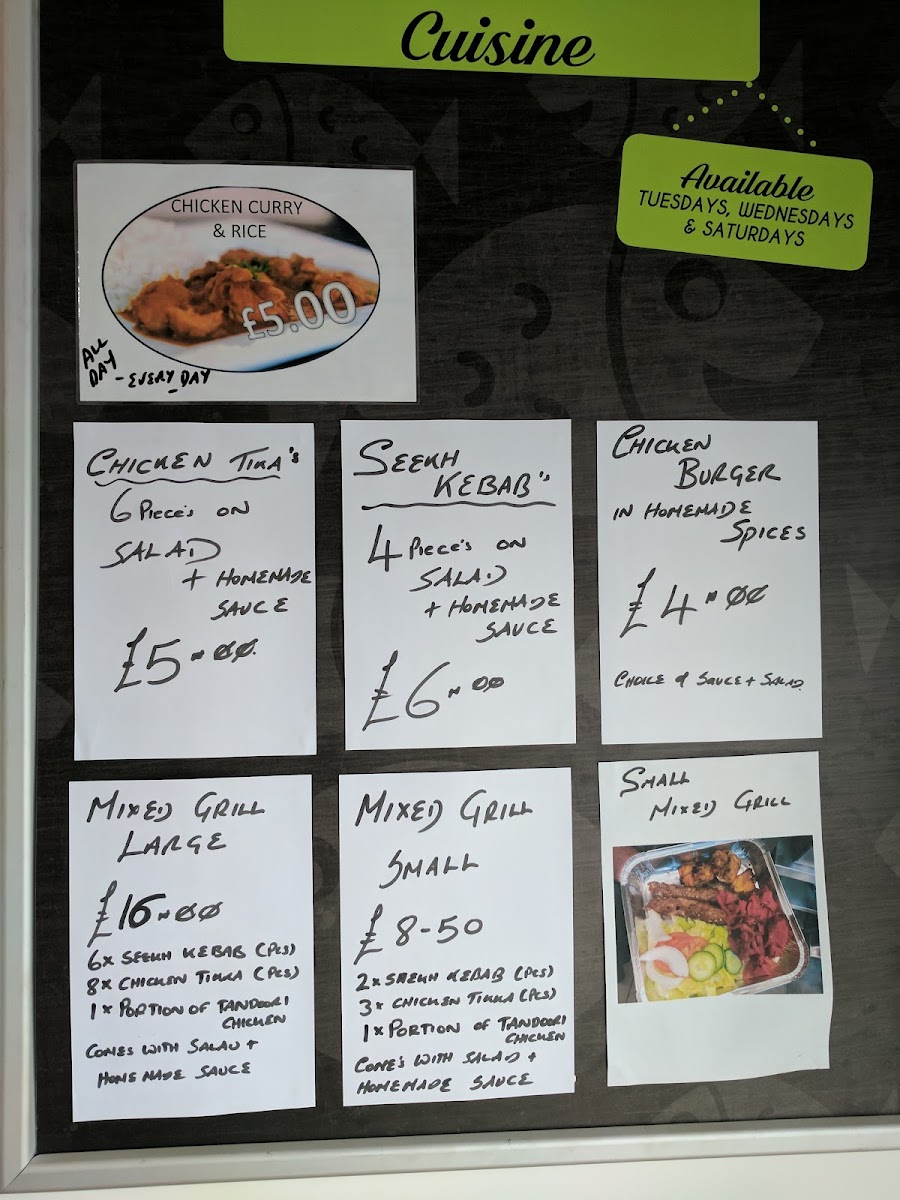 Cuisine
Available
TUESDAYS, WEDNESDAYS
& SATURDAYS
CHICKEN CURRY
& RICE
£5.00
ALL
DAY
- EVERY DAY
CHICKEN TIKA's
6 PIECE's ON
SALAD
+ HOMEMADE
SAUCE
£5=00
SEEKH
KEBAB's
4 PIECE's ON
SALAD
+ HOMEMADE
SAUCE
£6=00
CHICKEN
BURGER
IN HOMEMADE
SPICES
£4=00
CHOICE of SAUCE + SALAD
MIXED GRILL
LARGE
£16=00
6x SEEKH KEBAB (PCS)
8x CHICKEN TIKKA (PCS)
1x PORTION OF TANDOORI
CHICKEN
COMES WITH SALAD +
HOMEMADE SAUCE
MIXED GRILL
SMALL
£8-50
2x SEEKH KEBAB (PCS)
3x CHICKEN TIKKA (PCS)
1x PORTION OF TANDOORI
CHICKEN
COME's WITH SALAD +
HOMEMADE SAUCE
SMALL
MIXED GRILL